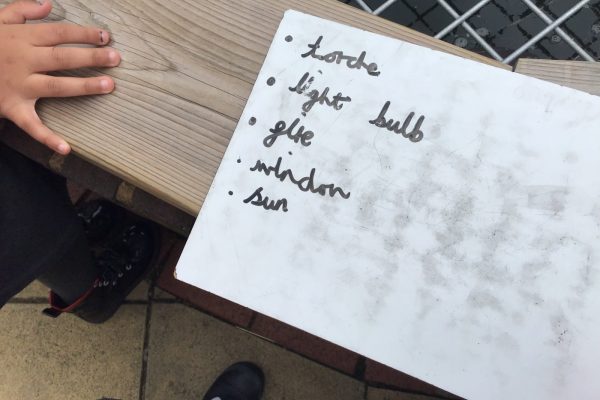 • torche
• light bulb
• glie
• windon
• sun